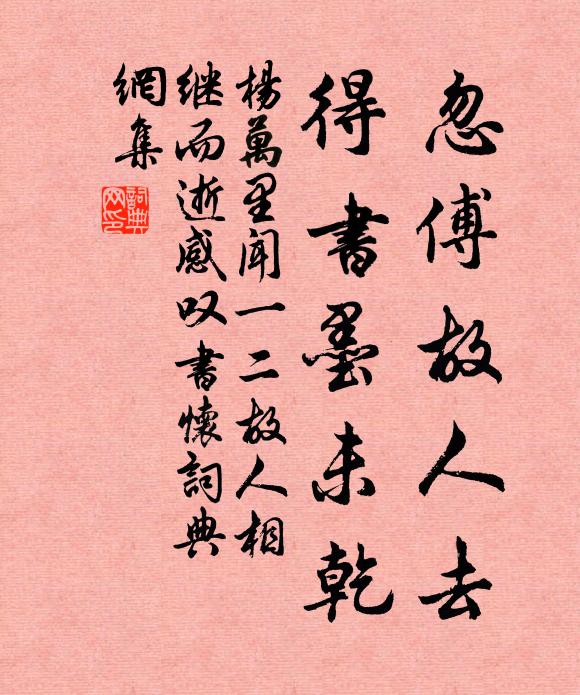 忽傅故人去
得書墨未乾
楊萬里聞一二故人相
继而逝感叹書懷詞典
網集
詞典
网印